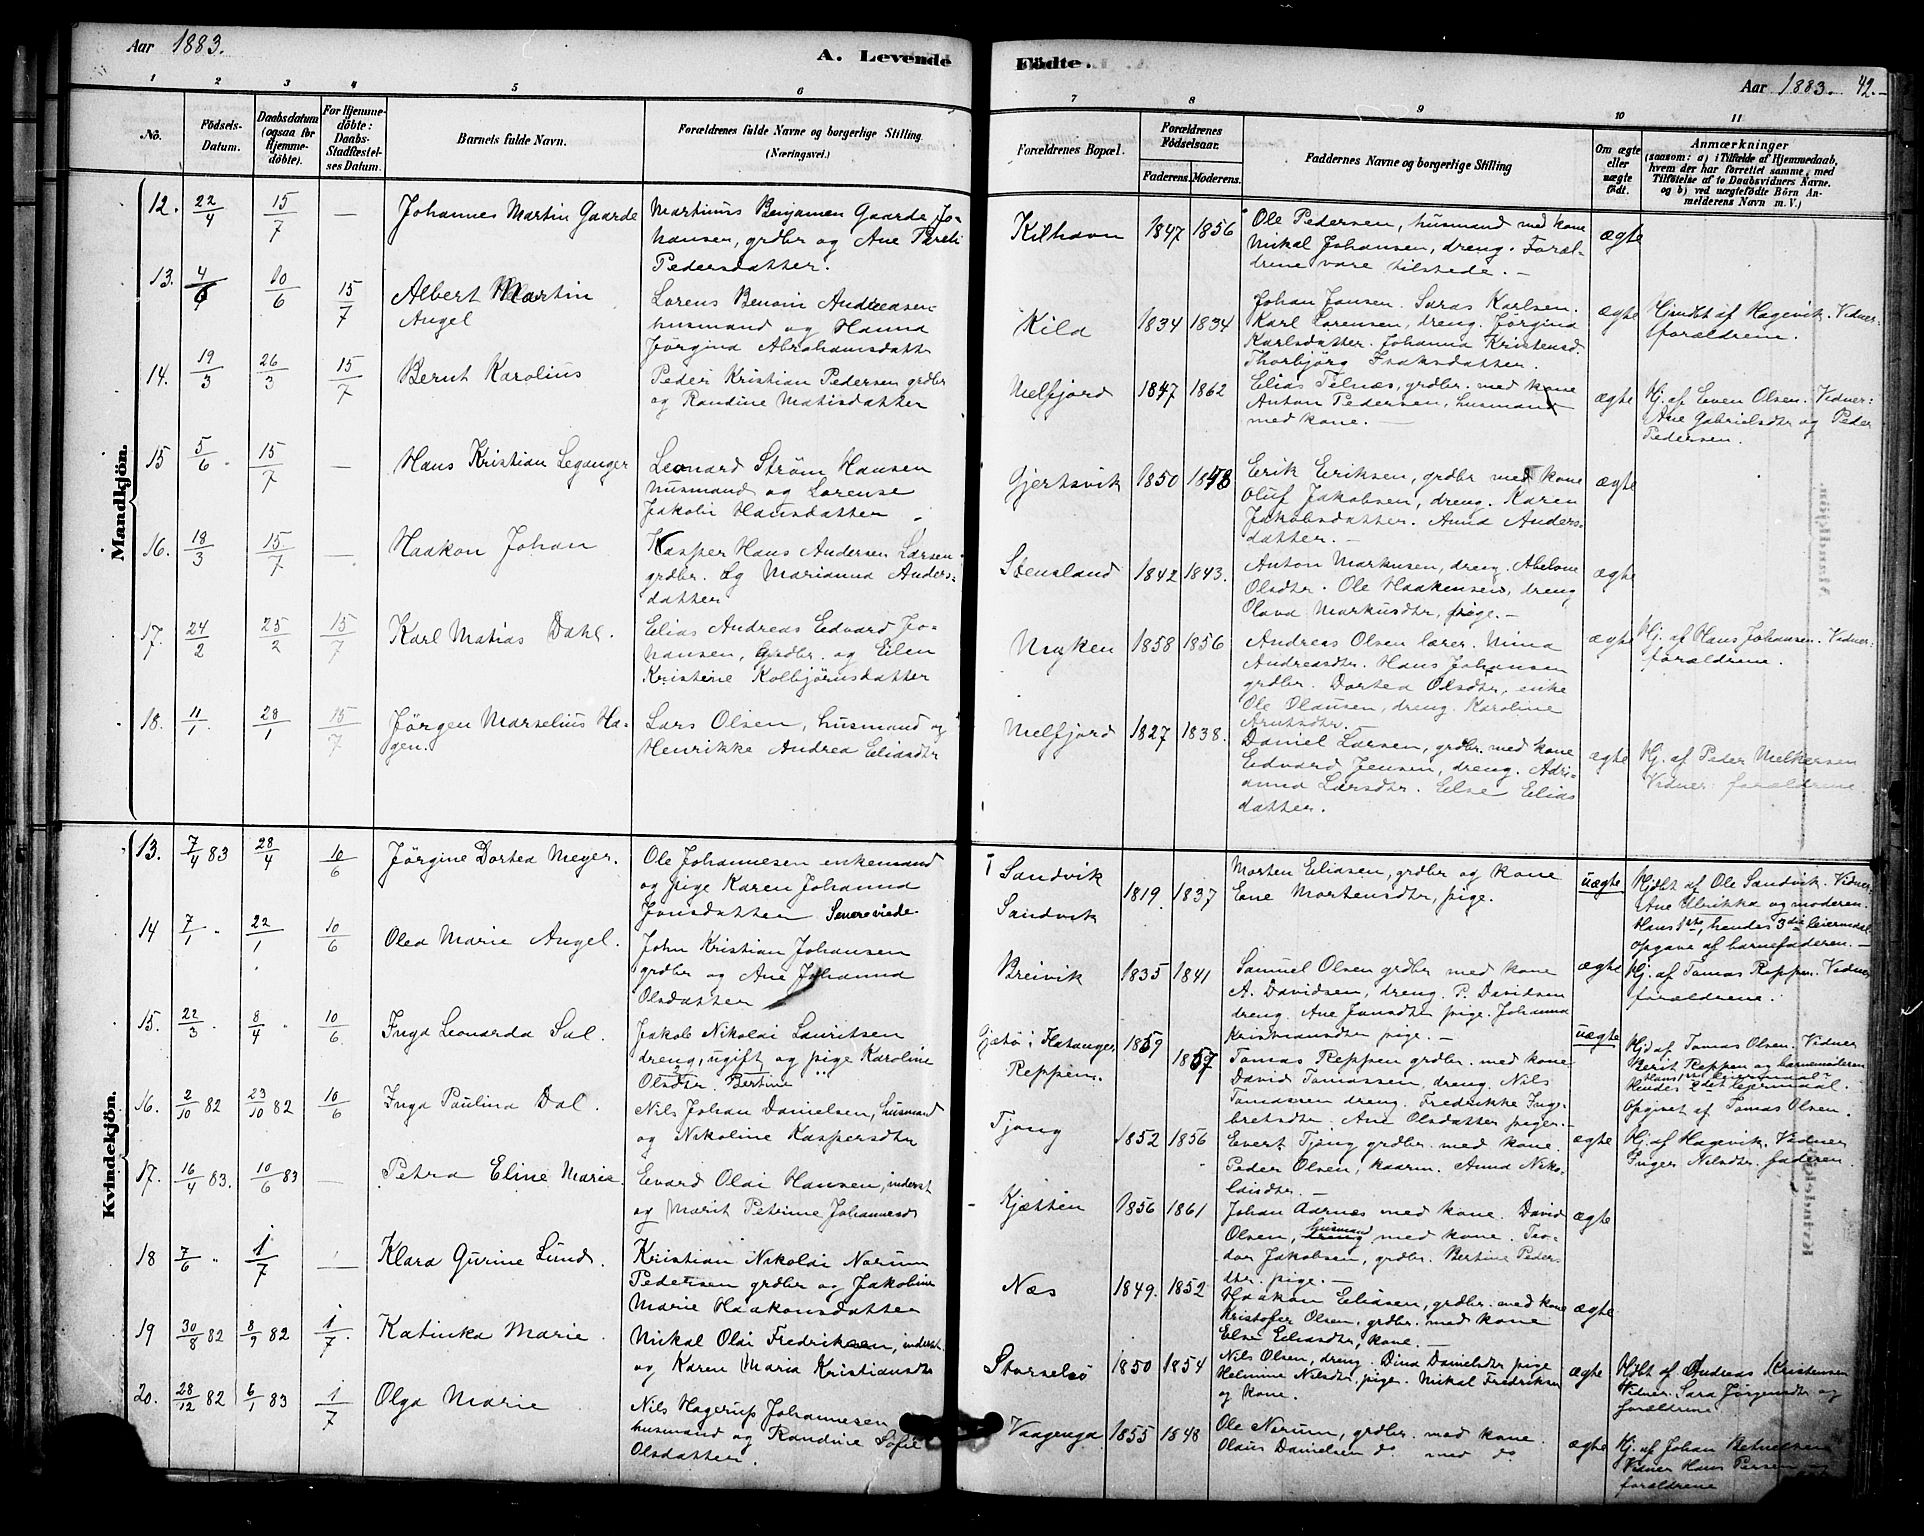 Aar 1883.
A. Levende Födte.
Aar 1883. 42.
1 2 3 4 5 6 7 8 9 10 11
No.
Födsels-Datum.
Daabsdatum (ogsaa for Hjemme-döbte).
For Hjemme-döbte: Daabs-Stadfæstel-ses Datum.
Barnets fulde Navn.
Forældrenes fulde Navne og borgerlige Stilling (Næringsvei.)
Forældrenes Bopæl.
Forældrenes Födselsaar.
Faderens. Moderens.
Faddernes Navne og borgerlige Stilling
Om ægte eller uægte födt.
Anmærkninger
(saasom: a) i Tilfælde af Hjemmedaab,
hvem der har forrettet samme, med
Tilföielse af to Daabsvidners Navne.
og b) ved uægtefödte Börn An-
melderens Navn m. V.)
Mandkjön.
12. 22/4 15/7 — Johannes Martin Gaarde
Martinus Benjamen Gaarde Jo-
hansen, grdbr og Ane
Pedersdatter.
Kilhavn 1847 1856
Ole Pedersen, husmand med kone
Mikal Johansen, dreng. Foræl-
drene vare tilstede. —
ægte
13. 4/6 10/6 15/7 Albert Martin
Angel
Lorens Benoni Andreasen
husmand og Hanna
Jörgina Abrahamsdatt
Kila 1834 1834
Johan Jansen. Saras Karlsen.
Karl Lorensen, dreng. Jörgina
Karlsdatter. Johanna Kristensd.
Thorbjörg Isaksdatter.
ægte
Hjmdbt af Hagevik. Vidner:
forældrene.
14. 19/3 26/3 15/7 Bernt Karolius
Peder Kristian Pedersen grdbr
og Randine Matisdatter
Melfjord 1847 1862
Elias Telnæs, grdbr. med kone
Anton Pedersen, husmand
med kone. —
ægte
Hj. af Even Olsen. Vidner:
Ane Gabrielsdtr og Peder
Pedersen.
15 5/6 15/7 — Hans Kristian Leganger
Leonard Ström Hansen
husmand og Lorense
Jakobi Hansdatter
Gjertsvik 1850 1848
Erik Eriksen, grdbr med kone
Oluf Jakobsen, dreng. Karen
Jakobsdatter. Anna Anders-
datter. —
ægte
16. 18/3 15/7 — Haakon Johan
Kasper Hans Andersen Larsen
grdbr. og Marianna Anders-
datter
Stensland 1842 1843.
Anton Markusen, dreng. Abelone
Olsdtr. Ole Haakensen, dreng
Olava Markusdtr, pige. —
ægte
17. 24/2 25/2 15/7 Karl Matias Dahl.
Elias Andreas Edvard Jo-
hansen, grdbr. og Elen
Kristine Kolbjörnsdatter
Nuyken 1858 1856
Andreas Olsen lærer. Nina
Andreasdtr. Hans Johansen
grdbr. Dortea Olsdtr, enke
Ole Olausen, dreng. Karoline
Arntsdtr. —
ægte
Hj. af Hans Johansen. Vidner:
forældrene.
18. 11/1 28/1 15/7 Jörgen Marselius Ha-
gen.
Lars Olsen, husmand og
Henrikke Andrea Eliasdtr
Melfjord 1827 1838.
Daniel Larsen, grdbr. med kone
Edvard Jensen, dreng. Adri-
anna Larsdtr. Else Elias
datter.
ægte
Hj. af Peder Melkersen
Vidner: forældrene.
Kvindekjön.
13. 7/4 83 28/4 10/6 Jörgine Dortea Meyer.
Ole Johannesen enkemand
og pige Karen Johanna
Jonsdatter
Sandvik
Sandvik 1819. 1837
Morten Eliasen, grdbr og kone
Ene Mortensdtr, pige.
uægte
Hjdbt af Ole Sandvik. Vidner:
Ane Ulrikka og moderen.
Hans 1ste, hendes 3die leiermaal
opgave af barnefaderen. —
14 7/1 „ 22/1 10/6 Olea Marie Angel.
John Kristian Johansen
grdbr og Ane Johanna
Olsdatter
Breivik 1835 1841
Samuel Olsen grdbr med kone
A. Davidsen, dreng. P. Davidsen
dreng. Ane Jonsdtr pige. Johanna
Kristiansdtr pige. —
ægte
Hj. af Tomas Reppen. Vidner
forældrene.
15. 22/3 „ 8/4 „ 10/6 Inga Leonarda Sal.
Jakob Nikolai Lauritsen
dreng, ugift og pige Karoline
Olsdtr Bertine
Gjætö i
Reppen. 1859 1857
Tomas Reppen grdbr. med kone
David Tomassen, dreng. Nils
Tomassen dreng. Fredrikke Inge-
bretsdtr. Ane Olsdatter piger. —
uægte
Hjd af Tomas Olsen. Vidner
Berit Reppen og barnemoderen
Hans 1ste leiermaal
hendes 2det lejermaal.
Opgivet af Tomas Olsen.
16. 2/10 82 23/10 82 10/6 Inga Paulina Dal.
Nils Johan Danielsen, husmand
og Nikoline Kaspersdtr
Tjong 1852 1856
Evert Tjong grdbr. med kone
Peder Olsen, kaarm. Anna Niko-
laisdtr. —
ægte
Hj. af Hagevik. Vidner
Inger Nilsdtr. faderen.
17. 16/4 83. 10/6 83 — Petra Eline Marie.
Evard Olai Hansen, inderst
og Marit Petrine Johannesd
Kjætten 1856 1861
Johan Aarnæs med kone. David
Olsen, husmand med kone. Teo-
dor Jakobsen, grdbr. Bertine Peders-
dtr. pige. —
ægte
18 7/6 „ 1/7 — Klara Gurine Lund.
Kristian Nikolai Norum
Pedersen grdbr og Jakobine
Marie Haakonsdatter
Næs 1849. 1852
Haakon Eliasen, grdbr. med kone
Kristofer Olsen, grdbr. med kone
Else Eliasdtr, kone. —
ægte
19 30/8 82 8/9 82 1/7. Katinka Marie.
Mikal Olai Fredriksen, inderst
og Karen Maria Kristiansdtr
Storselsö 1850 1854
Nils Olsen, dreng. Dina Danielsdtr pige
Helmine Nilsdtr, pige. Mikal Fredriksen
og kone.
ægte
Hjdbt af Andreas Kristensen
Vidner: Sara Jörgensdtr og
forældrene
20. 28/12 82 6/1 83 1/7 Olga Marie
Nils Hagerup Johannesen
husmand og Randine Sofie
Olsdatter.
Vaagenga 1855 1848
Ole Norum, grdbr. med kone.
Olaus Danielsen do med do
ægte
Hj. af Johan
Vidner Hans Persen
forældrene